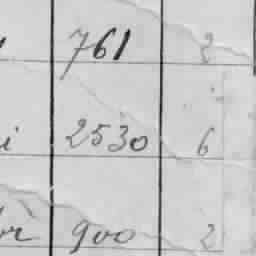 761 2
i 2530 6
900 2